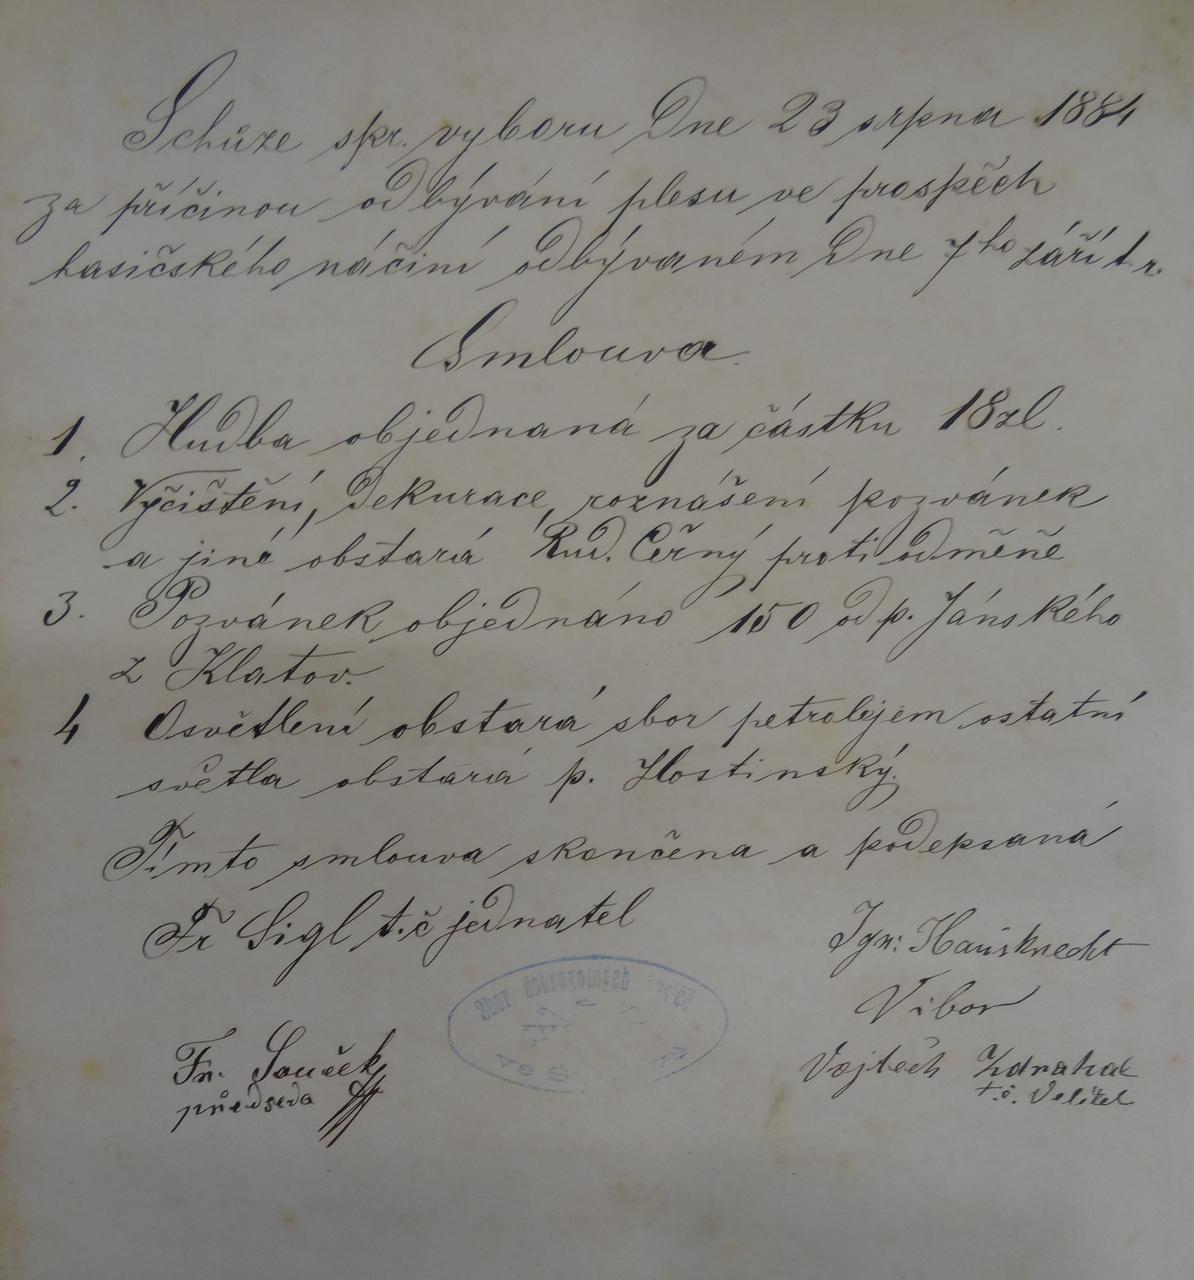 Schůze spr. vyboru Dne 23 srpna 1884
za příčinou odbývání plesu ve prospěch
hasičského náčiní odbývaném Dne 7ho září t. r.
Smlouva.
1. Hudba objednaná za částku 18zl.
2. Vyčištění, Dekurace, roznášení pozvánek
a jiné obstará Rud. Čěrný proti odměňe
3. Pozvánek objednáno 150 od p. Jánského
z Klatov.
4 Osvětlení obstará sbor petrolejem ostatní
světla obstará p. Hostinský.
Tímto smlouva skončena a podepsaná
Fr Sigl t.č jednatel
Ign: Hausknecht
Vibor
Sbor dobrovolných hasičů
Fr. Souček
předseda
Vojtěch Zdrahal
t.č. Velitel